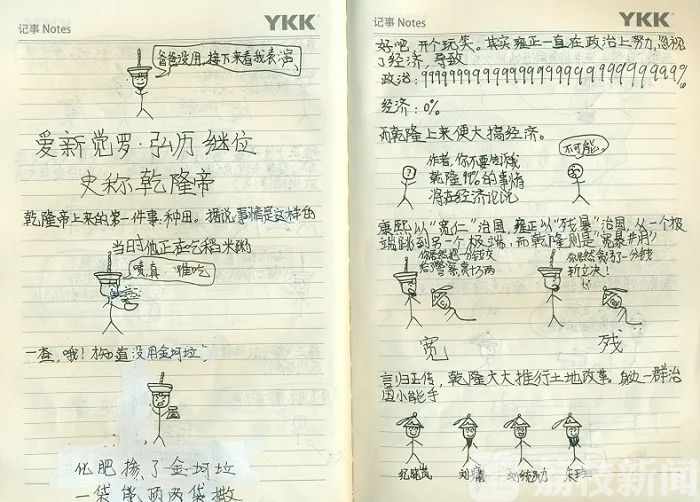 记事 Notes
YKK
爸爸没用,接下来看我表演
爱新觉罗·弘历继位
史称乾隆帝
乾隆帝上来的第一件事:种田。据说事情是这样的
当日他正在吃稻米粥
噴,真难吃
一查,哦!才知道没用金坷垃
化肥掺了金坷垃
一袋能顶两袋撒
记事 Notes
YKK
好吧,开个玩笑。其实雍正一直在政治上努力,忽视
了经济,导致
经济:0%
而乾隆上来便大搞经济。
作者,你不要告诉我
乾隆99%的事情
将在经济论说
不可能。
康熙以“宽仁”治国,雍正以“残暴”治国,从一个极
端跳到另一个极端,而乾隆则是“宽暴并用”
宽
残
言归正传,乾隆大大推行土地改革,身边一群治
国小能手
纪晓岚
刘墉
荔枝新闻